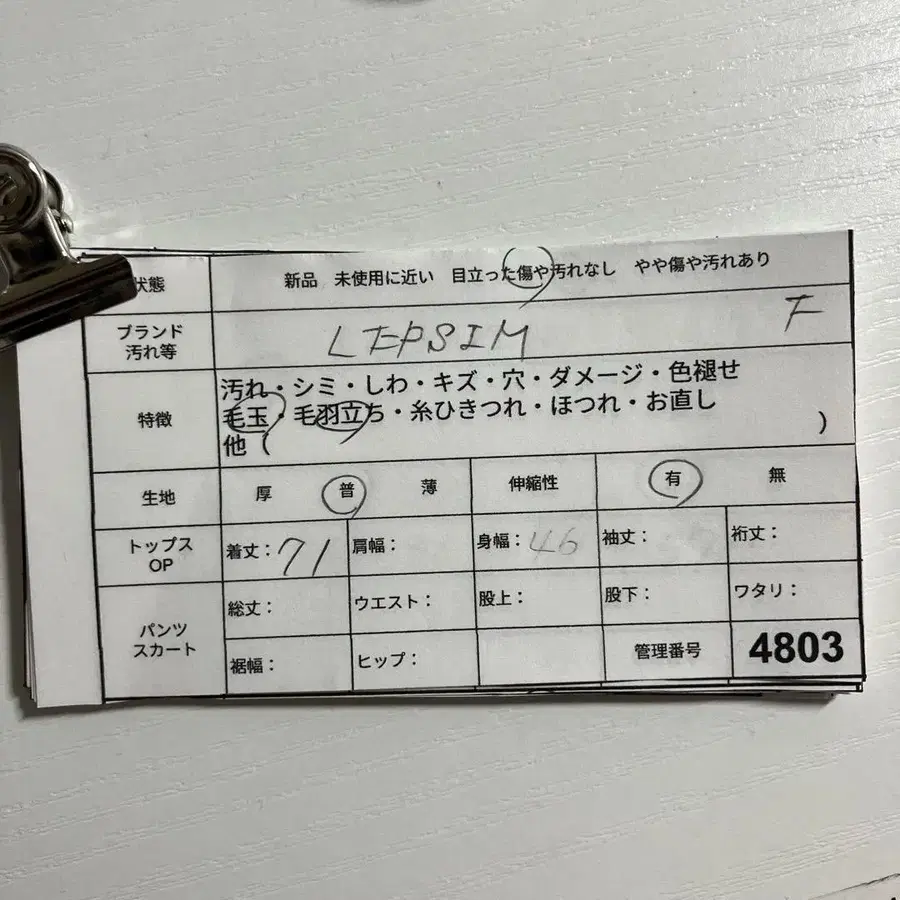 状態 新品 未使用に近い 目立った傷や汚れなし やや傷や汚れあり
ブランド
汚れ等 LEPSIM F
特徴 汚れ・シミ・しわ・キズ・穴・ダメージ・色褪せ
毛玉・毛羽立ち・糸ひきつれ・ほつれ・お直し
他( )
生地 厚 普 薄 伸縮性 有 無
トップス
OP 着丈:71 肩幅: 身幅:46 袖丈: 裄丈:
パンツ
スカート 総丈: ウエスト: 股上: 股下: ワタリ:
裾幅: ヒップ: 管理番号 4803